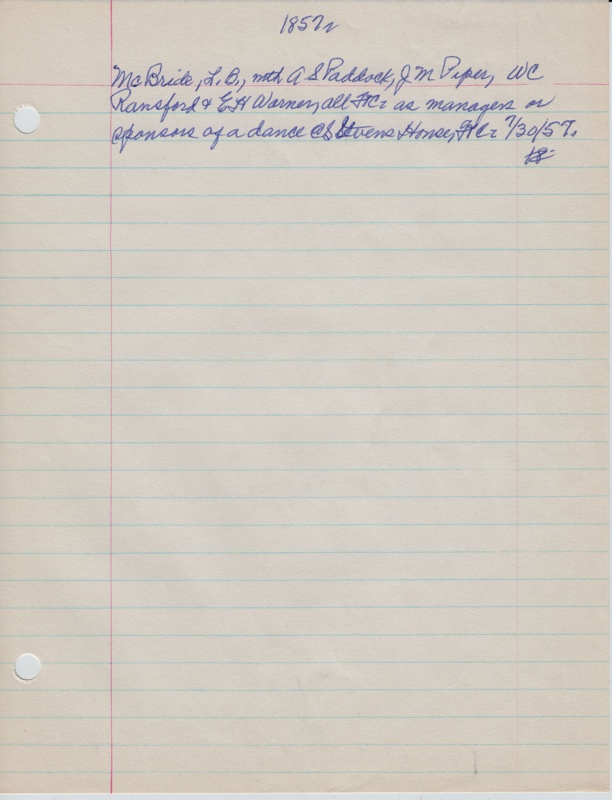 1857
McBride, L.B., with A S Paddock, J M Piper, WC
Ransford & E H Warner, all FtCr as managers or
sponsors of a dance @ Stevens House, FtCr 7/30/57.